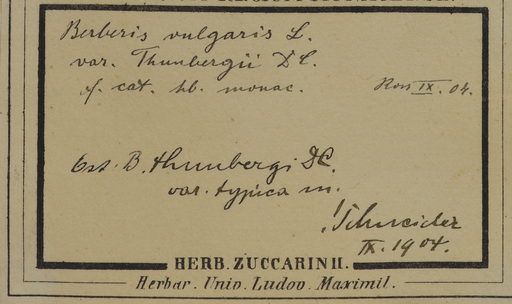 Berberis vulgaris L.
var. Thunbergii DC.
cf. cat. hb. monac. IX. 04.
Est. B. thunbergi DC.
var. typica m.
!Schneider
IX. 1904.
HERB. ZUCCARINII.
Herbar. Univ. Ludov. Maximil.